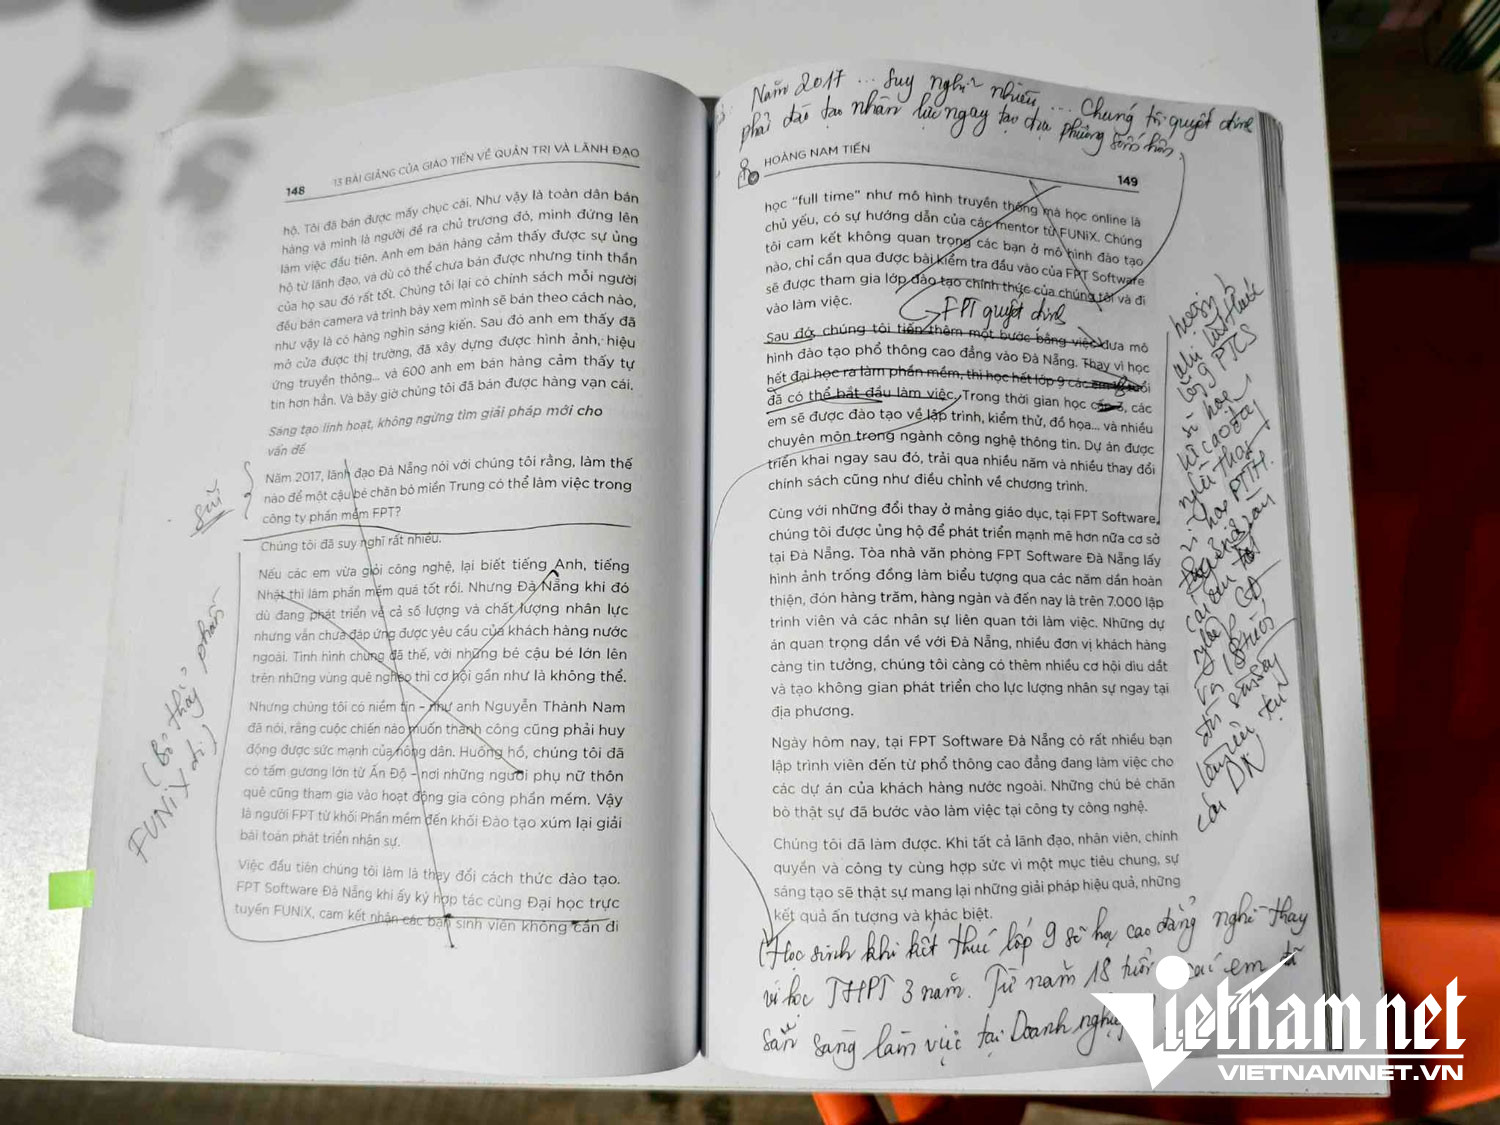 148 13 BÀI GIẢNG CỦA GIÁO TIẾN VỀ QUẢN TRỊ VÀ LÃNH ĐẠO
hộ. Tôi đã bán được mấy chục cái. Như vậy là toàn dân bán
hàng và mình là người đề ra chủ trương đó, mình đứng lên
làm việc đầu tiên. Anh em bán hàng cảm thấy được sự ủng
hộ từ lãnh đạo, và dù có thể chưa bán được nhưng tinh thần
của họ sau đó rất tốt. Chúng tôi lại có chính sách mỗi người
đều bán camera và trình bày xem mình sẽ bán theo cách nào,
như vậy là có hàng nghìn sáng kiến. Sau đó anh em thấy đã
mở cửa được thị trường, đã xây dựng được hình ảnh, hiệu
ứng truyền thông... và 600 anh em bán hàng cảm thấy tự
tin hơn hẳn. Và bây giờ chúng tôi đã bán được hàng vạn cái.
Sáng tạo linh hoạt, không ngừng tìm giải pháp mới cho
vấn đề
Năm 2017, lãnh đạo Đà Nẵng nói với chúng tôi rằng, làm thế
nào để một cậu bé chăn bò miền Trung có thể làm việc trong
công ty phần mềm FPT?
Sửi
Chúng tôi đã suy nghĩ rất nhiều.
Nếu các em vừa giỏi công nghệ, lại biết tiếng Anh, tiếng
Nhật thì làm phần mềm quá tốt rồi. Nhưng Đà Nẵng khi đó
dù đang phát triển về cả số lượng và chất lượng nhân lực
nhưng vẫn chưa đáp ứng được yêu cầu của khách hàng nước
ngoài. Tình hình chung đã thế, với những bé cậu bé lớn lên
trên những vùng quê nghèo thì cơ hội gần như là không thể.
Nhưng chúng tôi có niềm tin – như anh Nguyễn Thành Nam
đã nói, rằng cuộc chiến nào muốn thành công cũng phải huy
động được sức mạnh của nông dân. Huống hồ, chúng tôi đã
có tấm gương lớn từ Ấn Độ – nơi những người phụ nữ thôn
quê cũng tham gia vào hoạt động gia công phần mềm. Vậy
là người FPT từ khối Phần mềm đến khối Đào tạo xúm lại giải
bài toán phát triển nhân sự.
Việc đầu tiên chúng tôi làm là thay đổi cách thức đào tạo.
FPT Software Đà Nẵng khi ấy ký hợp tác cùng Đại học trực
tuyến FUNiX, cam kết nhận các bạn sinh viên không cần đi
(Bỏ thầy phần
FUNiX đi)
Năm 2017 ... Suy nghĩ nhiều ... Chúng tôi quyết định
phải đào tạo nhân lực ngay tạo địa phương sớm hơn
HOÀNG NAM TIẾN
149
học "full time" như mô hình truyền thống mà học online là
chủ yếu, có sự hướng dẫn của các mentor từ FUNiX. Chúng
tôi cam kết không quan trọng các bạn ở mô hình đào tạo
nào, chỉ cần qua được bài kiểm tra đầu vào của FPT Software
sẽ được tham gia lớp đào tạo chính thức của chúng tôi và đi
vào làm việc.
FPT quyết định
Sau đó, chúng tôi tiến thêm một bước bằng việc đưa mô
hình đào tạo phổ thông cao đẳng vào Đà Nẵng. Thay vì học
hết đại học ra làm phần mềm, thì học hết lớp 9 các em 18 tuổi
đã có thể bắt đầu làm việc. Trong thời gian học cấp 3, các
em sẽ được đào tạo về lập trình, kiểm thử, đồ họa... và nhiều
chuyên môn trong ngành công nghệ thông tin. Dự án được
triển khai ngay sau đó, trải qua nhiều năm và nhiều thay đổi
chính sách cũng như điều chỉnh về chương trình.
Cùng với những đổi thay ở mảng giáo dục, tại FPT Software,
chúng tôi được ủng hộ để phát triển mạnh mẽ hơn nữa cơ sở
tại Đà Nẵng. Tòa nhà văn phòng FPT Software Đà Nẵng lấy
hình ảnh trống đồng làm biểu tượng qua các năm dần hoàn
thiện, đón hàng trăm, hàng ngàn và đến nay là trên 7.000 lập
trình viên và các nhân sự liên quan tới làm việc. Những dự
án quan trọng dần về với Đà Nẵng, nhiều đơn vị khách hàng
càng tin tưởng, chúng tôi càng có thêm nhiều cơ hội dìu dắt
và tạo không gian phát triển cho lực lượng nhân sự ngay tại
địa phương.
Ngày hôm nay, tại FPT Software Đà Nẵng có rất nhiều bạn
lập trình viên đến từ phổ thông cao đẳng đang làm việc cho
các dự án của khách hàng nước ngoài. Những chú bé chăn
bò thật sự đã bước vào làm việc tại công ty công nghệ.
Chúng tôi đã làm được. Khi tất cả lãnh đạo, nhân viên, chính
quyền và công ty cùng hợp sức vì một mục tiêu chung, sự
sáng tạo sẽ thật sự mang lại những giải pháp hiệu quả, những
kết quả ấn tượng và khác biệt.
(Học sinh khi kết thúc lớp 9 sẽ học cao đẳng nghề thay
vì học THPT 3 năm. Từ năm 18 tuổi các em đã
sẵn sàng làm việc tại Doanh nghiệp
lớp 9 PTCS
sẽ học
cao đẳng
nghề thay
vì học PTTH.
18 tuổi
đã sẵn sàng
làm việc tại
các DN
Vietnamnet
VIETNAMNET.VN